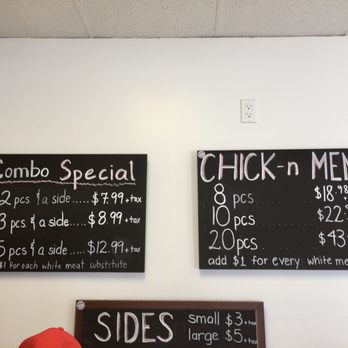 Combo Special
2 pcs. & a side..... $7.99 + tax
3 pcs. & a side..... $8.99 + tax
5 pcs & a side..... $12.99 + tax
$1 for each white meat substitute
CHICK-n MEN
8 pcs. $18.98
10 pcs. $22.
20 pcs. $43
add $1 for every white me
SIDES
small $3 + tax
large $5 + tax